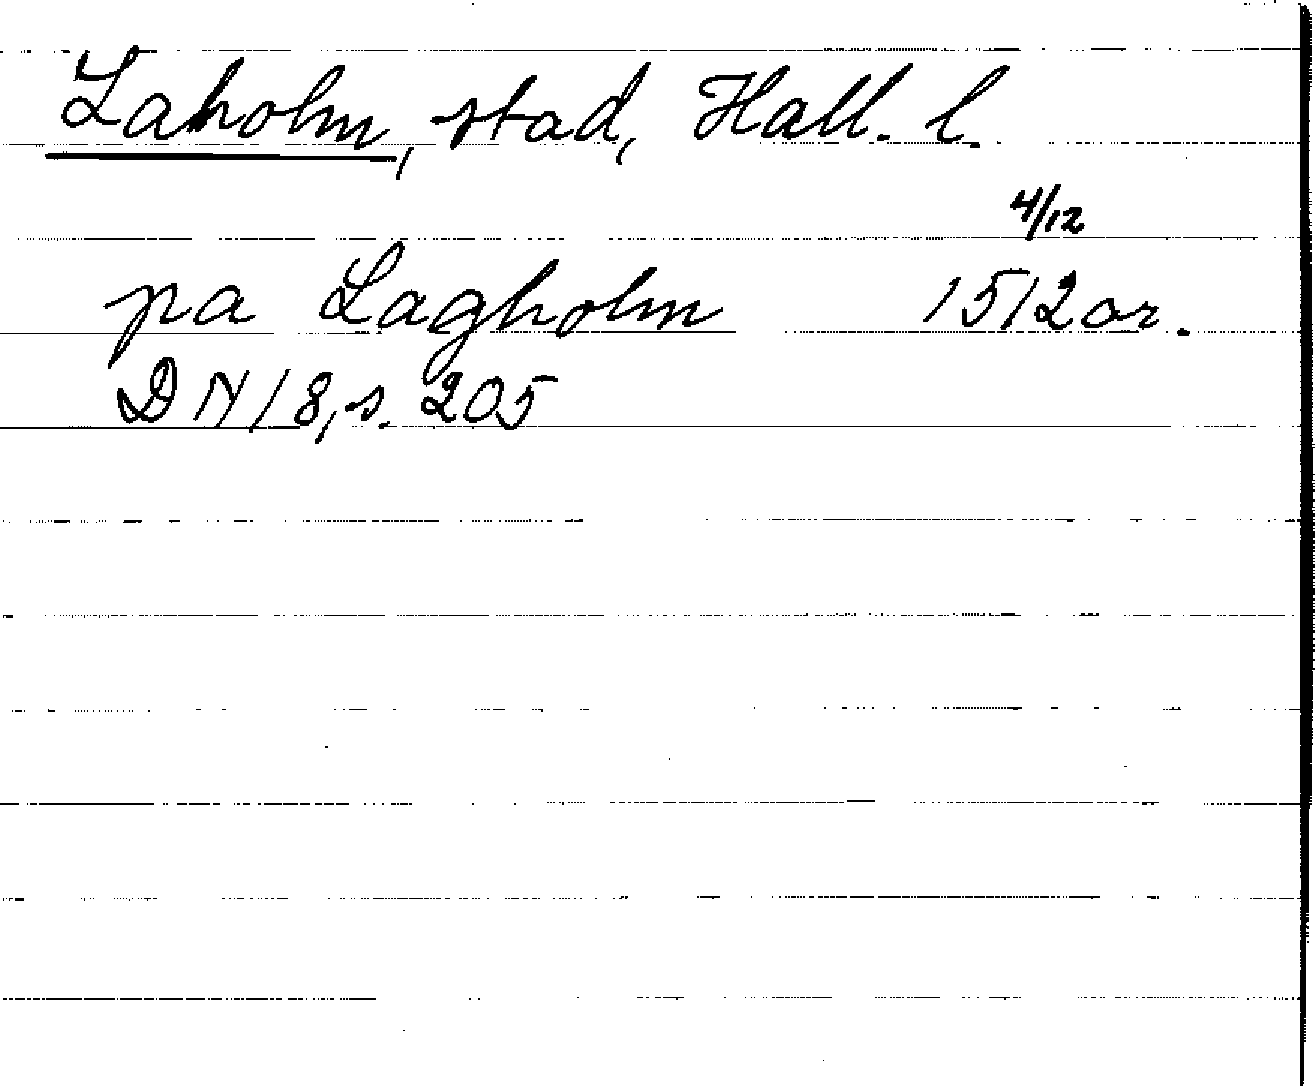 Laholm, stad, Hall. l.
4/12
pa Lagholm 1512 or.
DN 18, s. 205